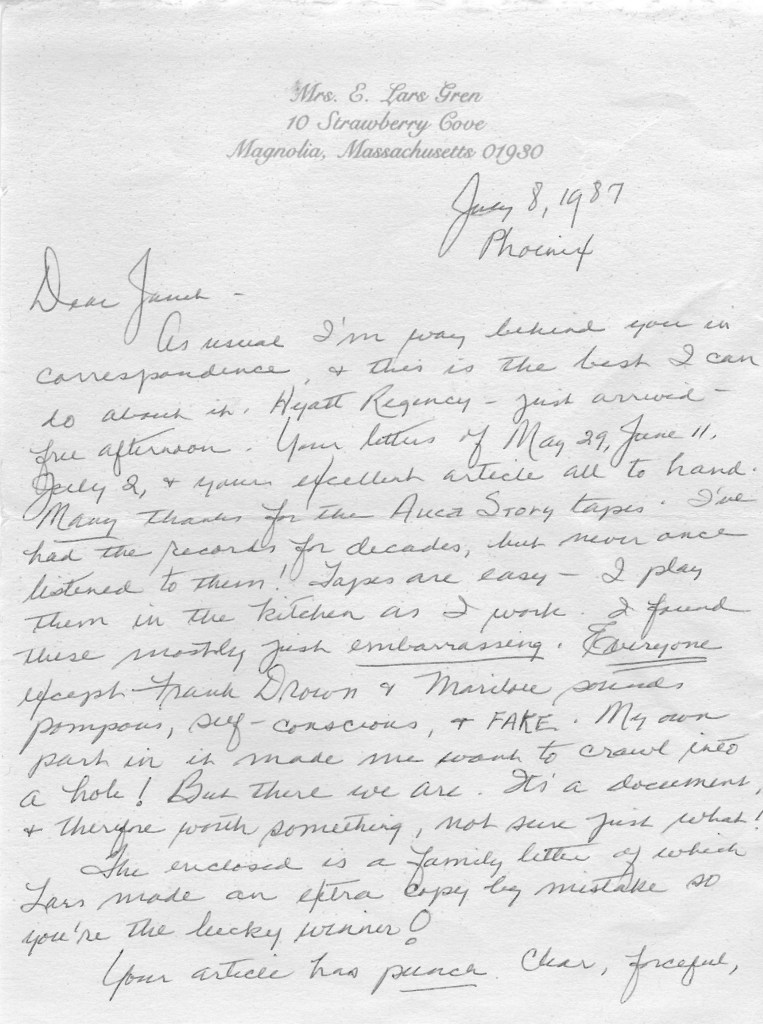 Mrs. E. Lars Gren
10 Strawberry Cove
Magnolia, Massachusetts 01930
July 8, 1987
Phoenix
Dear Janet -
As usual I'm way behind you in
correspondence, & this is the best I can
do about it. Hyatt Regency - just arrived -
free afternoon. Your letters of May 29, June 11,
July 2, & your excellent article all to hand.
Many thanks for the Auca Story tapes. I've
had the records for decades, but never once
listened to them! Tapes are easy - I play
them in the kitchen as I work. I found
these mostly just embarrassing. Everyone
except Frank Drown & Marilou sounds
pompous, self-conscious, & FAKE. My own
part in it made me want to crawl into
a hole! But there we are. It's a document,
& therefore worth something, not sure just what!
The enclosed is a family letter of which
Lars made an extra copy by mistake so
you're the lucky winner!
Your article has punch. Clear, forceful,